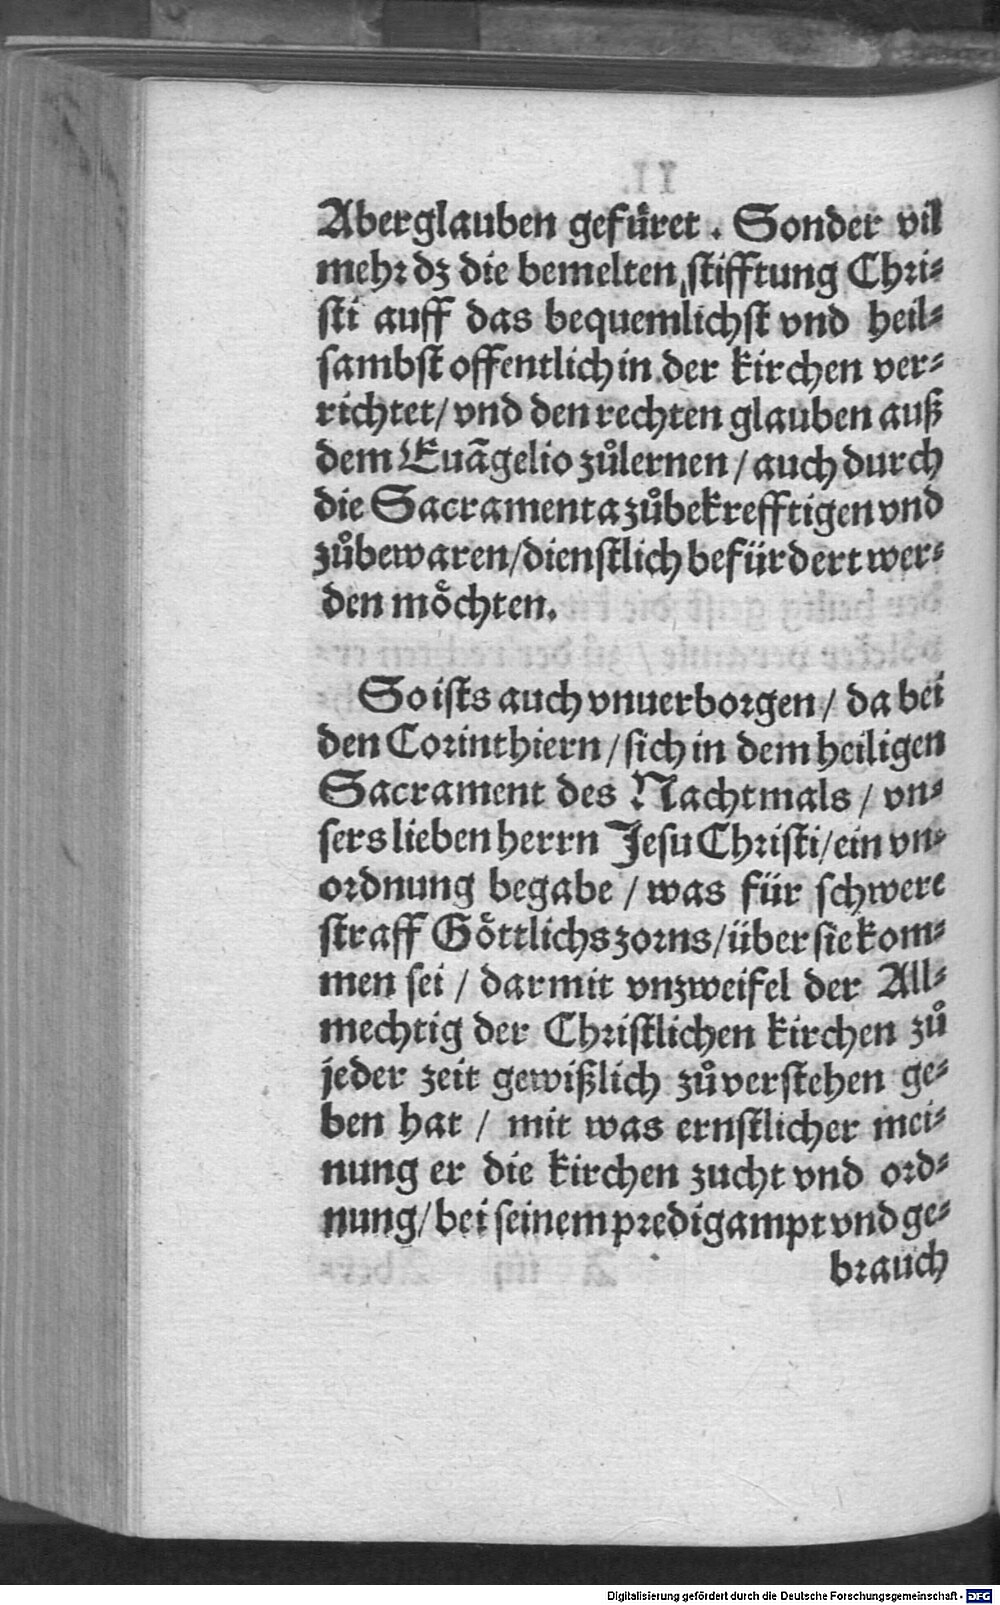 Aberglauben gefüret. Sonder vil
mehr dz die bemelten stifftung Chri-
sti auff das bequemlichst vnd heil-
sambst offentlich in der kirchen ver-
richtet/ vnd den rechten glauben auß
dem Euãgelio zůlernen / auch durch
die Sacramenta zůbekrefftigen vnd
zůbewaren/ dienstlich befürdert wer-
den möchten.
So ists auch vnuerborgen / da bei
den Corinthiern / sich in dem heiligen
Sacrament des Nachtmals / vn-
sers lieben herrn Jesu Christi/ ein vn-
ordnung begabe / was für schwere
straff Göttlichs zorns/ über sie kom-
men sei / darmit vnzweifel der All-
mechtig der Christlichen kirchen zů
jeder zeit gewißlich zůverstehen ge-
ben hat / mit was ernstlicher mei-
nung er die kirchen zucht vnd ord-
nung/ bei seinem predigampt vnd ge-
brauch
Digitalisierung gefördert durch die Deutsche Forschungsgemeinschaft - DFG